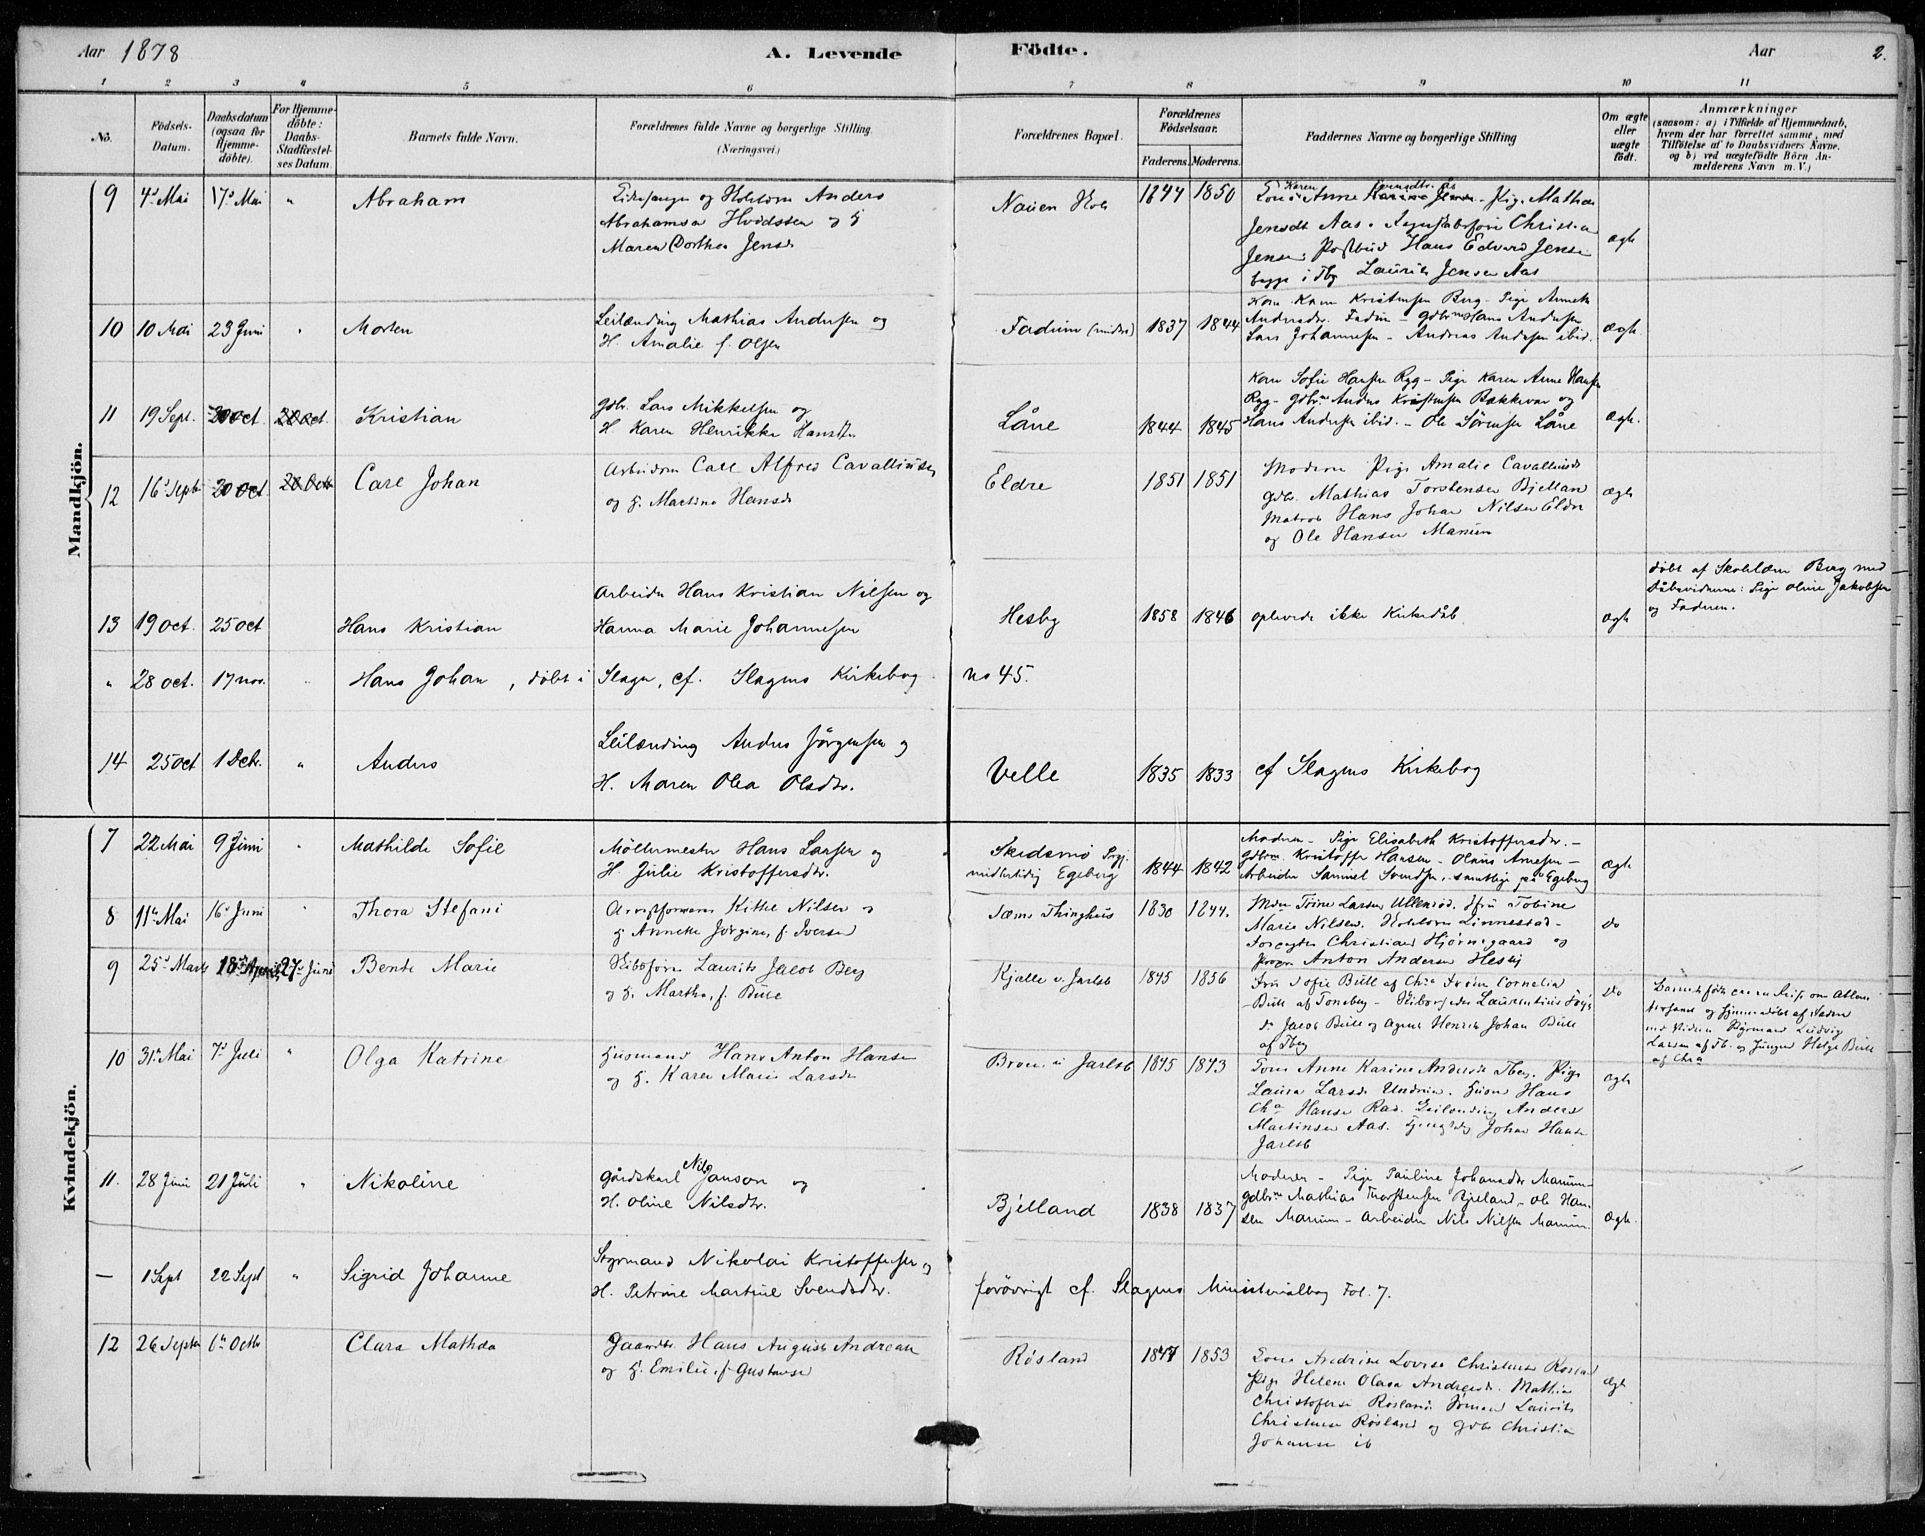 Aar 1878
A. Levende
Födte.
Aar
2.
1 2 3 4 5 6 7 8 9 10 11
No.
Födsels-Datum.
Daabsdatum (ogsaa for Hjemme-döbte).
For Hjemme-döbte: Daabs-Stadfæstel-ses Datum.
Barnets fulde Navn.
Forældrenes fulde Navne og borgerlige Stilling.
(Næringsvei.)
Forældrenes Bopæl.
Forældrenes Födselsaar.
Faderens. Moderens.
Faddernes Navne og borgerlige Stilling
Om ægte eller uægte födt.
Anmærkninger
(saasom: a) i Tilfælde af Hjemmedaab,
hvem der har forrettet samme, med
Tilföielse af to Daabsvidners Navne.
og b) ved uægtefödte Börn An-
melderens Navn m. V.)
Mandkjön.
9 4d Mai 17d Mai " Abraham
og Anders
Abrahamsen og H
Maren Dorthea Jensdr
Nauen 1844 1850
Anne Pige Mathea
Jensdt Aas Christian
Jensen Postbud Hans Edvard Jensen
begge i Tbg Laurits Jensen Aas
ægte
10 10 Mai 23 Juni " Morten
Leilænding Mathias Andersen og
H. Amalie f. Olsen
Fadum 1837 1844
Kone Karen Kristensen Berg - Pige Annette
Andersdr. Fadum - Gdbr Hans Andersen
Lars Johannesen - Andreas Andersen ibid.
ægte.
11 19 Sept. 20 Oct. 20 Oct. Kristian
Gdbr. Lars Mikkelsen og
H. Karen Henrikke Hansdtr
Låne 1844 1845
Kone Sofie Hansen Ryg - Pige Karen Anne Hansen
Ryg - Gdbr Anders Kristensen Bakkevar og
Hans Andersen ibid. - Ole Sörensen Låne
ægte.
12 16d Septb 20 Oct 20 Octb Carl Johan
Arbeidsm Carl Alfred Cavalliusen
og H. Martina Hansdr
Eldre 1851 1851
Moderen Pige Amalie Cavalliusdr
Gdbr. Mathias Torstensen Bjelland
Matros Hans Johan Nilsen Eldre
og Ole Hansen Manum
ægte
13 19 Oct. 25 Oct Hans Kristian
Arbeider Hans Kristian Nilsen og
Hanna Marie Johannesen
Hesby 1858 1846 oplevede ikke Kirkedåb
ægte
döbt af Skolelærer Berg med
Dåbsvidnerne: Pige Oline Jakobsen
og Faderen.
" 28 Oct. 17 Nov. " Hans Johan, döbt i Slagen, cf. Slagens Kirkebog no 45.
14 25 Oct 1 Dcb. " Anders
Leilænding Anders Jörgensen og
H. Maren Olea Olsdtr.
Velle 1835 1833 cf Slagens Kirkebog
Kvindekjön.
7 22 Mai 9 Juni " Mathilde Sofie
Möllermester Hans Larsen og
H. Julie Kristoffersdtr.
Skedsmo
midlertidig Egeberg 1844 1842
Moderen - Pige Elisabeth Kristoffersdtr. -
Gdbr. Kristoffer Hansen - Olaus Arnesen -
Arbeider Samuel Svendsen, samtlige på Egeberg
ægte
8 11te Mai 16d Juni " Thora Stefani
Kittel Nilsen og
H Annette Jörgine, f. Iversen
Sæms Thinghus 1830 1844.
Larsen Ullensöd. Tobine
Marie Nilsen. Linnestad -
Forpagter Christian Hjörnegaard og
Anton Andersen Hesby
do
9 25d Marts 18d April 27d Juni Bente Marie
Skibsförer Laurits Jacob Berg
og H. Martha, f. Bull
Kjælle v. Jarlsb 1845 1856
Fru Sofie Bull af Chra Fröken Cornelia
Bull af Tonsberg - Laurentius
do Jacob Bull og Agent Henrik Johan Bull
af Tbg
do
Barnet født
hjemmedöbt af Faderen
med Vidner Styrmand Ludvig
Larsen af Tb. og Helge Bull
af Chra
10 31te Mai 7d Juli " Olga Katrine
Husmand Hans Anton Hansen
og H. Karen Marie Larsdr
Jarlsb 1845 1843
Kone Anne Karine Andersen Tbg. Pige
Laura Larsdr Undrum. Husm Hans
Chr Hansen Rad. Leilænding Anders
Martinsen Aas. Johan Hansen
Jarlsb
ægte
11. 28 Juni 21 Juli " Nikoline
Gårdskarl Nils Janson og
H. Oline Nilsdtr.
Bjelland 1838 1837
Moderen - Pige Pauline Johansdtr Manum -
Gdbr Mathias Thorstensen Bjelland - Ole Han-
sen Manum - Arbeider Nils Nilsen Manum
ægte.
— 1 Sept 22 Sept " Sigrid Johanne
Styrmand Nikolai Kristoffersen og
H. Petrine Martine Svendsdtr.
forövrigt cf. Slagens Ministerialbog Fol. 7.
12 26 Septbr 6te Octbr Clara Mathea
Gaardbr Hans August Andreasen
og H. Emilie, f. Gustavsen
Røsland 1847 1853
Kone Andrine Lovise Christensen Rosland
Pige Helene Olava Andreasdr. Mathias
Christofersen Røsland. Sömand Laurits
Christensen Røsland og Gdbr Christian
Johansen ib
ægte